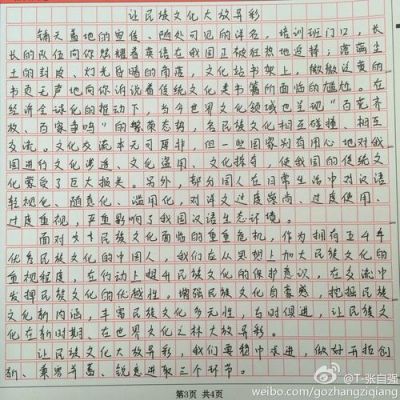 让民族文化大放异彩
铺天盖地的宣传、随处可见的洋名,培训班门口,长
长的队伍向你炫耀着英语在我国正被狂热地追捧;落满尘
土的封皮、灯光昏暗的角落,文化站书架上,微微泛黄的
书页无声地向你诉说着传统文化类书籍所面临的尴尬。在
经济全球化的推动下,当今世界文化领域也呈现"百花齐
放、百家争鸣"的繁荣态势,各民族文化相互碰撞、相互
交流。文化交流本无可厚非,但一些国家别有用心地对我
国进行文化渗透、文化盗用、文化掠夺,使我国的传统文
化蒙受了巨大损失。另外,部分国人在日常生活中对汉语
轻视化、随意化、滥用化,对洋文过度崇尚、过度使用、
过度重视,严重影响了我国汉语生态环境。
面对民族文化面临的重重危机,作为拥有五千年
优秀民族文化的中国人,我们在从思想上加大民族文化的
重视程度,在行动上提升民族文化的保护意识,在交流中
发挥民族文化的优越性,增强民族文化自豪感,挖掘民族
文化新内涵,丰富民族文化多元性,与时俱进,让民族文
化在新时期、在世界文化之林大放异彩。
让民族文化大放异彩,我们要稳中求进,做好开拓创
新、兼容并蓄、锐意进取三个环节。
第3页 共4页
@T-张自强
weibo.com/gozhangziqiang